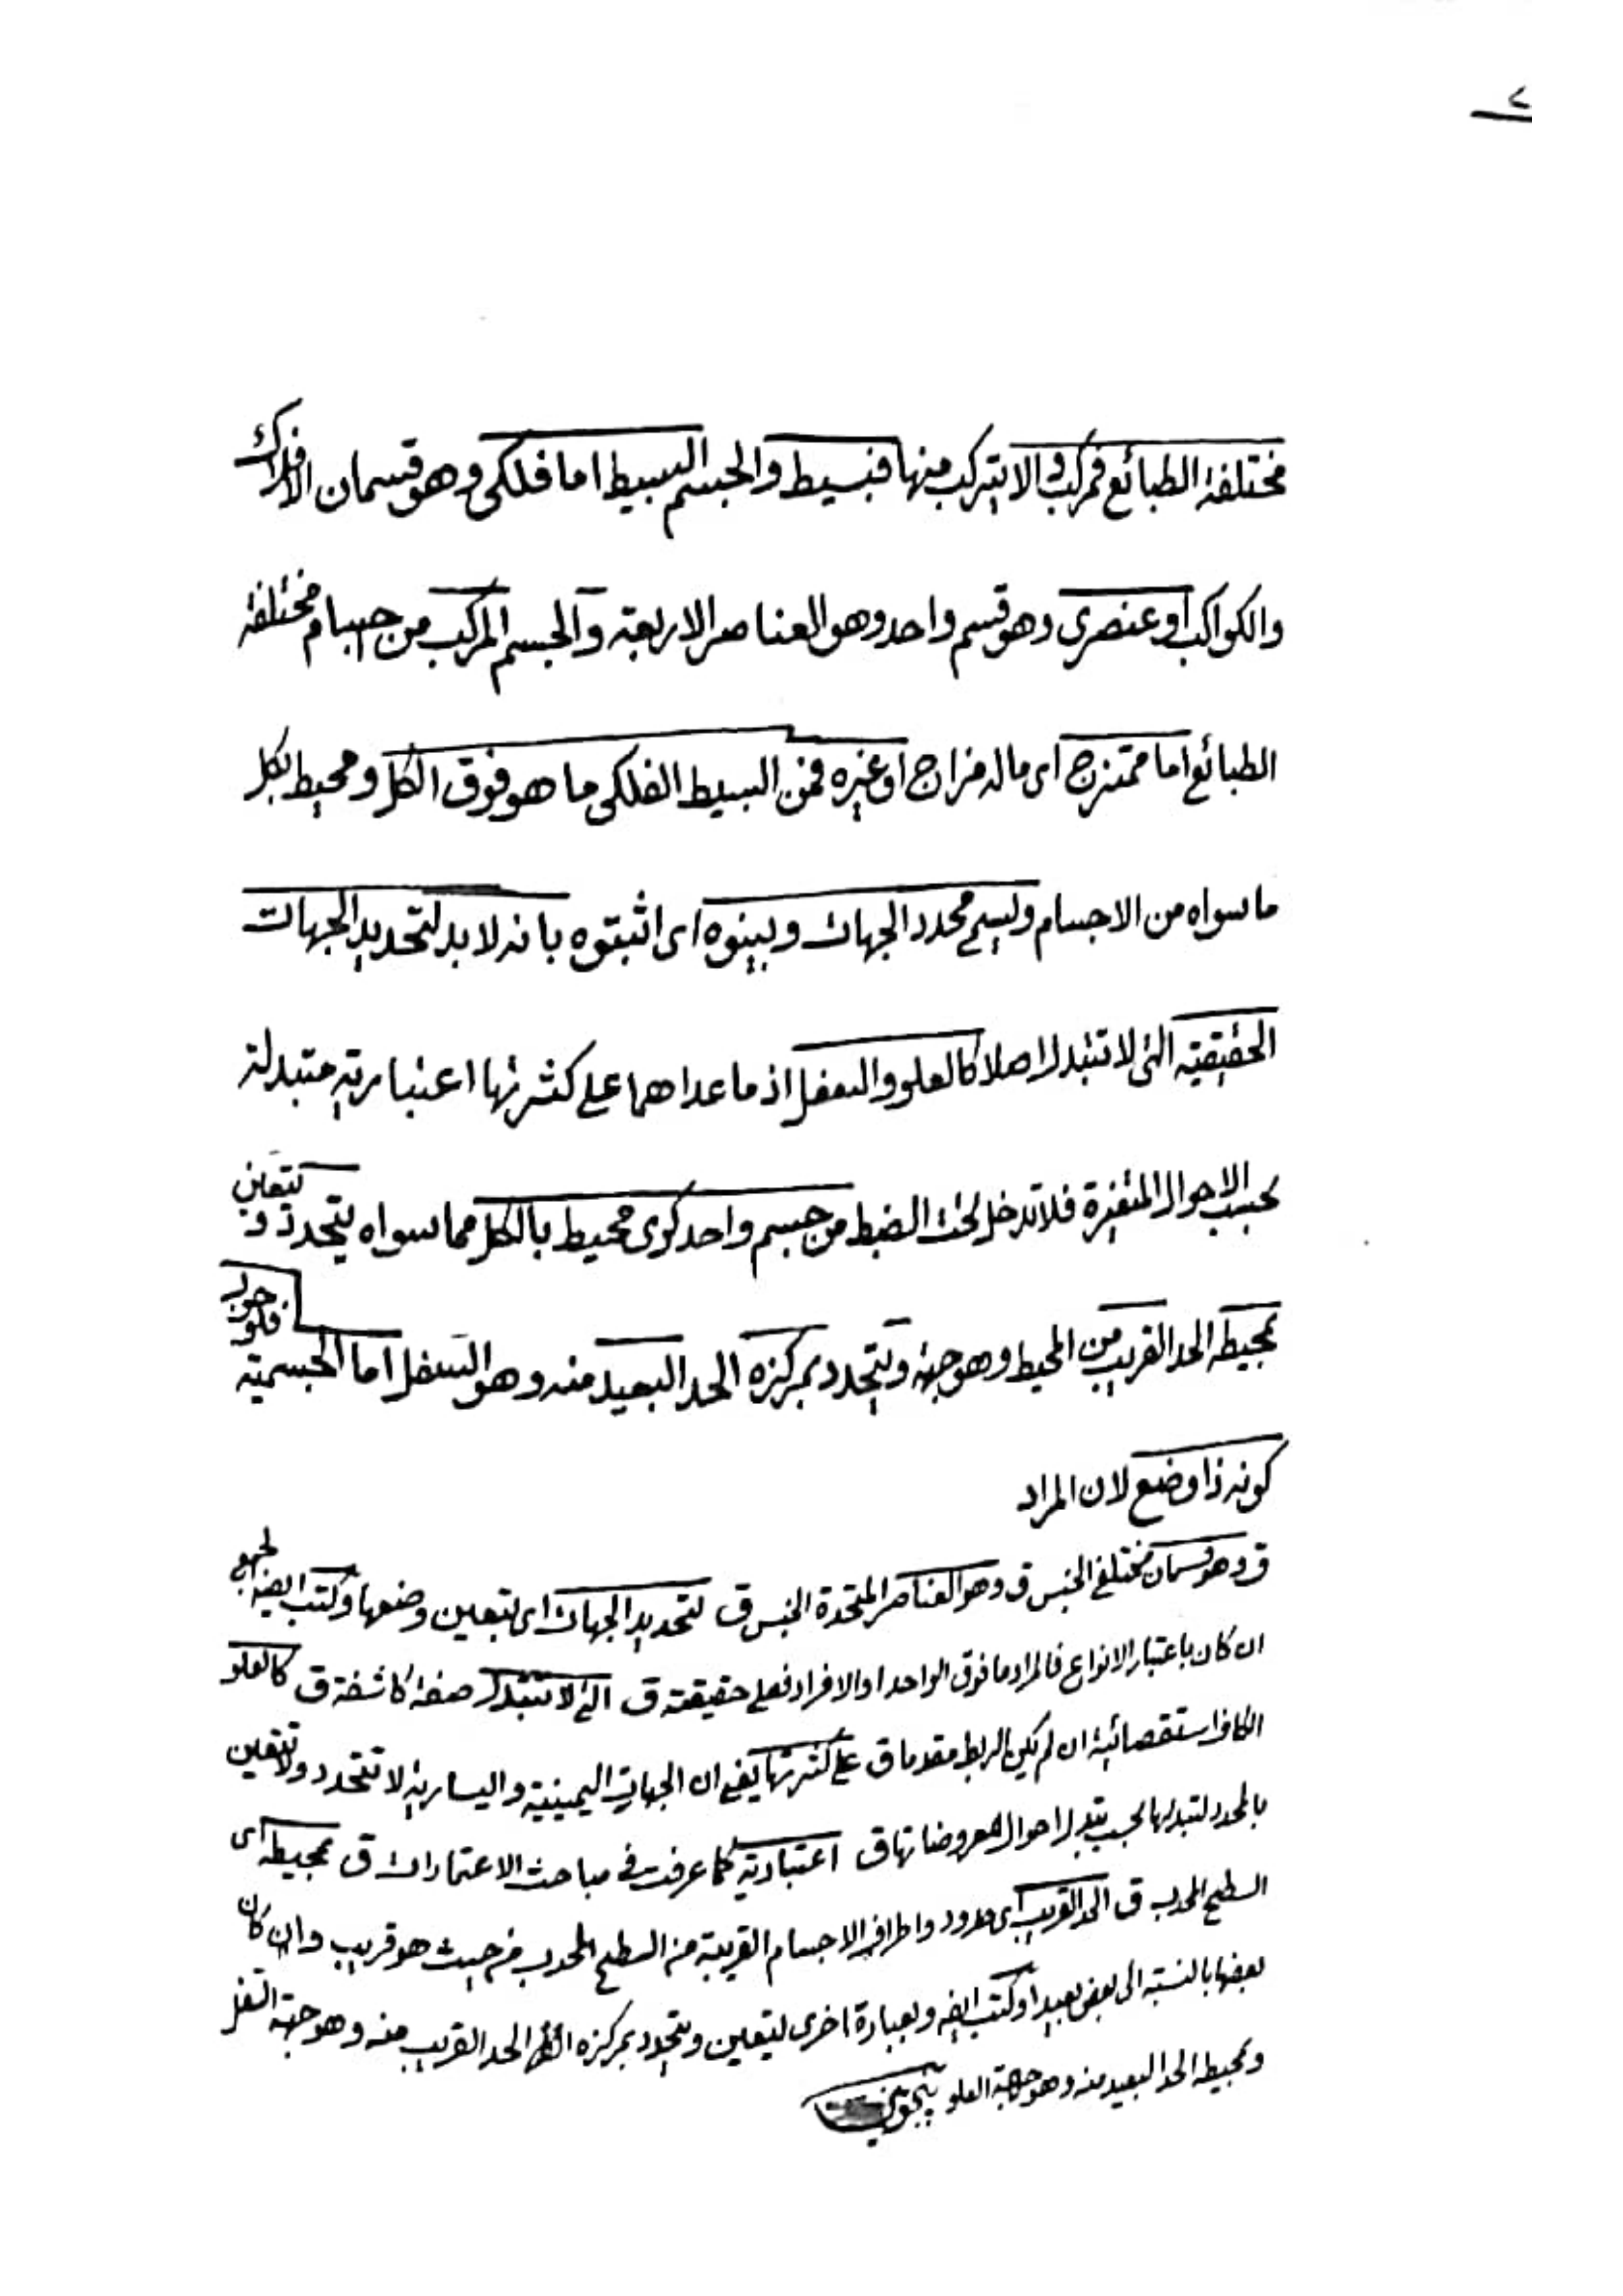 ٢
مختلفة الطبائع فمركب والا يتركب منها فبسيط والجسم البسيط اما فلكى وهو قسمان الافلاك
والكواكب او عنصرى وهو قسم واحد وهو العناصر الاربعة والجسم المركب من جسام مختلفة
الطبائع اما ممتزج اى ماله مزاج او غيره فمن البسيط الفلكى ما هو فوق الكل ومحيط بكل
ما سواه من الاجسام وليسم محدد الجهات وبينوه اى اثبتوه بانه لا بد لتحديد الجهات
الحقيقية التى لا تتبدل اصلا كالعلو والسفل اذ ما عداهما على كثرتها اعتبارية متبدلة
بحسب الاحوال المتغيرة فلا تدخل تحت الضبط من جسم واحد كرى محيط بالكل مما سواه يتحدد و تتعين
بمحيطه الحد القريب من المحيط وهو جهة ويتحدد بمركزه الحد البعيد منه وهو السفل اما الجسمية فلوجوب
كونه ذا وضع لان المراد
ق وهو قسمان مختلفى الجنس ق وهو العناصر المتحدة الجنس ق لتحديد الجهات اى بتعين وضعها وكتب ايضا
ان كان باعتبار الانواع فالمراد ما فوق الواحد او الافراد فعلى حقيقته ق التى لا تتبدل صفة كاشفة ق كالعلو
الكاف استقصائية ان لم يكن الربط مقدما ق على كثرتها يعنى ان الجهات اليمينية واليسارية لا تتحدد ولا تتعين
بالمحدد لتبدلها بحسب تبدل احوال معروضاتها ق اعتبارية كما عرفت فى مباحث الاعتمادات ق بمحيطه اى
السطح المحدب ق الحد القريب اى حدود واطراف الاجسام القريبة من السطح المحدب من حيث هو قريب وان كان
بعضها بالنسبة الى بعض بعيدا وكتب ايضه وبعبارة اخرى ليتعين ويتحدد بمركزه الحد القريب منه وهو جهة السفل
وبمحيطه الحد البعيد منه وهو جهة العلو